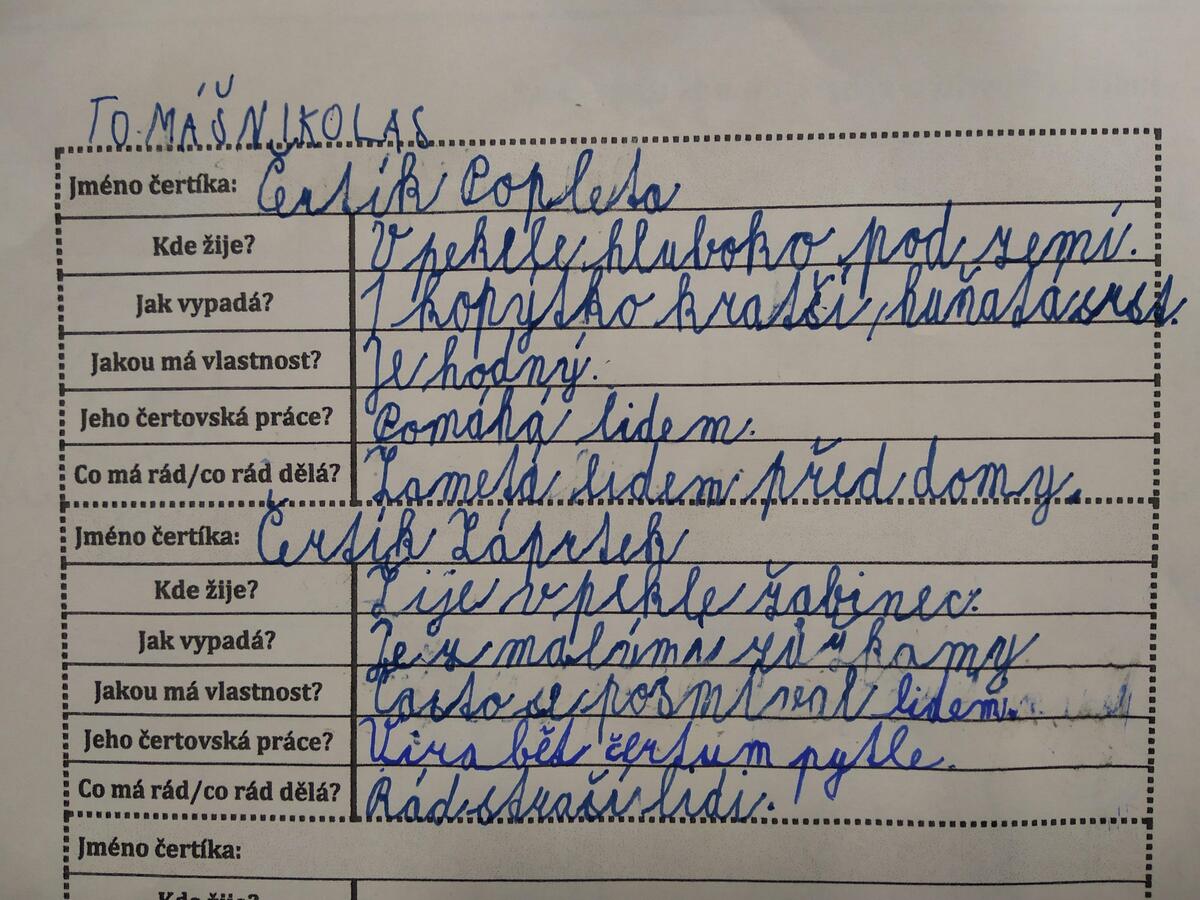 TOMÁŠ NIKOLAS
Jméno čertíka: Čertík Popleta
Kde žije? V pekle, hluboko pod zemí.
Jak vypadá? 1 kopýtko kratší, huňatá srst.
Jakou má vlastnost? Je hodný.
Jeho čertovská práce? Pomáhá lidem.
Co má rád/co rád dělá? Zametá lidem před domy.
Jméno čertíka: Čertík Záprtek
Kde žije? Žije v pekle žabinec.
Jak vypadá? Je z
Jakou má vlastnost? Často se lidem.
Jeho čertovská práce? čertum pytle.
Co má rád/co rád dělá? Rád straší lidi.
Jméno čertíka:
Kde žije?